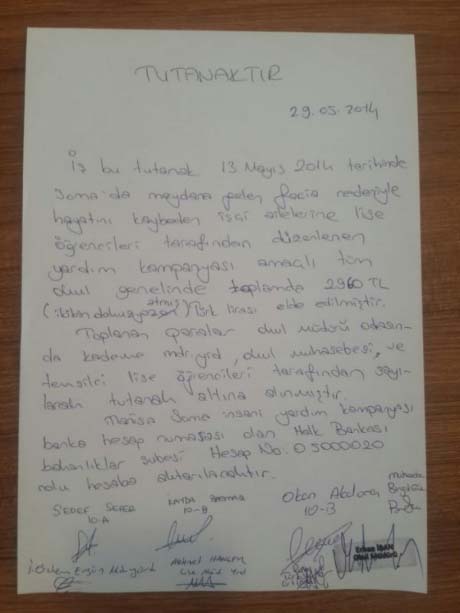 TUTANAKTIR
29.05.2014
İş bu tutanak 13 Mayıs 2014 tarihinde
Soma'da meydana gelen facia nedeniyle
hayatını kaybeden işçi ailelerine lise
öğrencileri tarafından düzenlenen
yardım kampanyası amaçlı tüm
okul genelinde toplamda 2960 TL
(ikibindokuzyüzaltmış) Türk lirası elde edilmiştir.
Toplanan paralar okul müdürü odasın-
da kademe mdr.yrd, okul muhasebesi, ve
temsilci lise öğrencileri tarafından sayı-
larak tutanak altına alınmıştır.
Manisa Soma insani yardım kampanyası
banka hesap numarası olan Halk Bankası
bakanlıklar şubesi Hesap No: 05000020
nolu hesaba aktarılacaktır.
SEDEF 10-A
10-B
Okan 10-B
Muhasebe
Lise Müd. Yrd
Erkan
OKUL MÜDÜRÜ